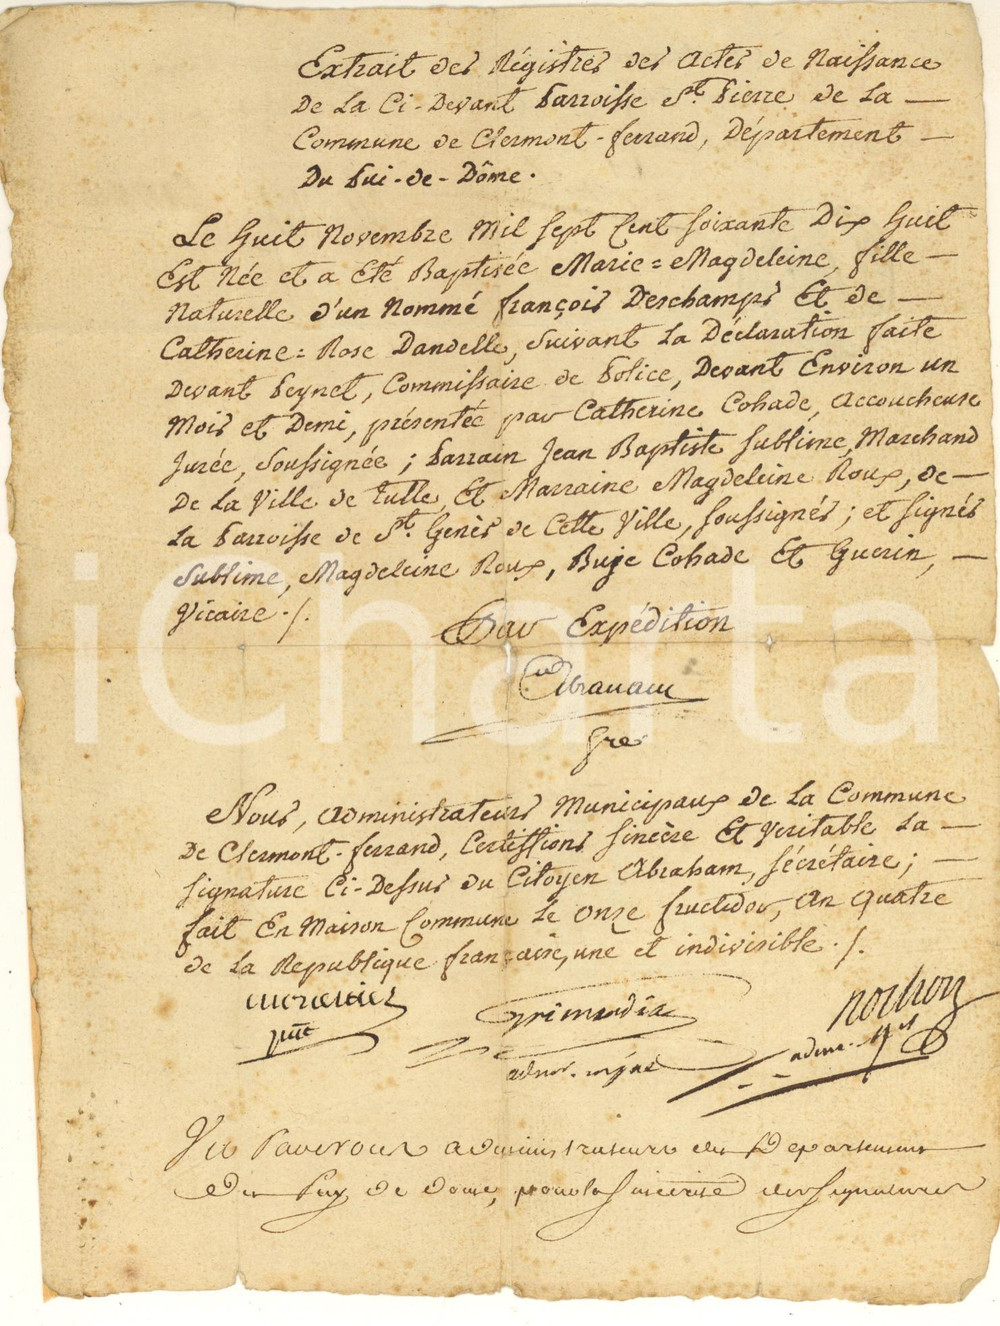 Extrait des Régistres des Actes de Naissance
De La Ci-Devant Parroisse St. Pierre de La —
Commune de Clermont-ferrand, Département —
Du Pui-de-Dôme.
Le Huit Novembre Mil Sept Cent Soixante Dix Huit
Est Née et a Eté Baptisée Marie=Magdeleine, fille —
Naturelle d'un Nommé françois Deschamps Et de —
Catherine=Rose Dandelle, Suivant La Déclaration faite
Devant Peynet, Commissaire de Police, Devant Environ un
Mois et Demi, présentée par Catherine Cohade, Accoucheuse
Jurée, Soussignée; Parrain Jean Baptiste Sublime, Marchand
De La Ville de Tulle, Et Marraine Magdeleine Roux, de —
La Parroisse de St. Genès de Cette Ville, Soussignés; et Signés
Sublime, Magdeleine Roux, Buje Cohade Et Guerin, —
Vicaire ./.
Par Expédition
Abraham
Sre
Nous, Administrateurs Municipaux de La Commune
De Clermont-ferrand, Certiffions Sincère Et Veritable La —
Signature Ci-Dessus du Citoyen Abraham, Sécrétaire; —
fait En Maison Commune Le Onze fructidor, An Quatre
de La Republique française, une et indivisible ./.
adme.
Vu Par Nous administrateurs du Departement
Du Puy de Dome, pour la Sincerité des Signatures
iCharta